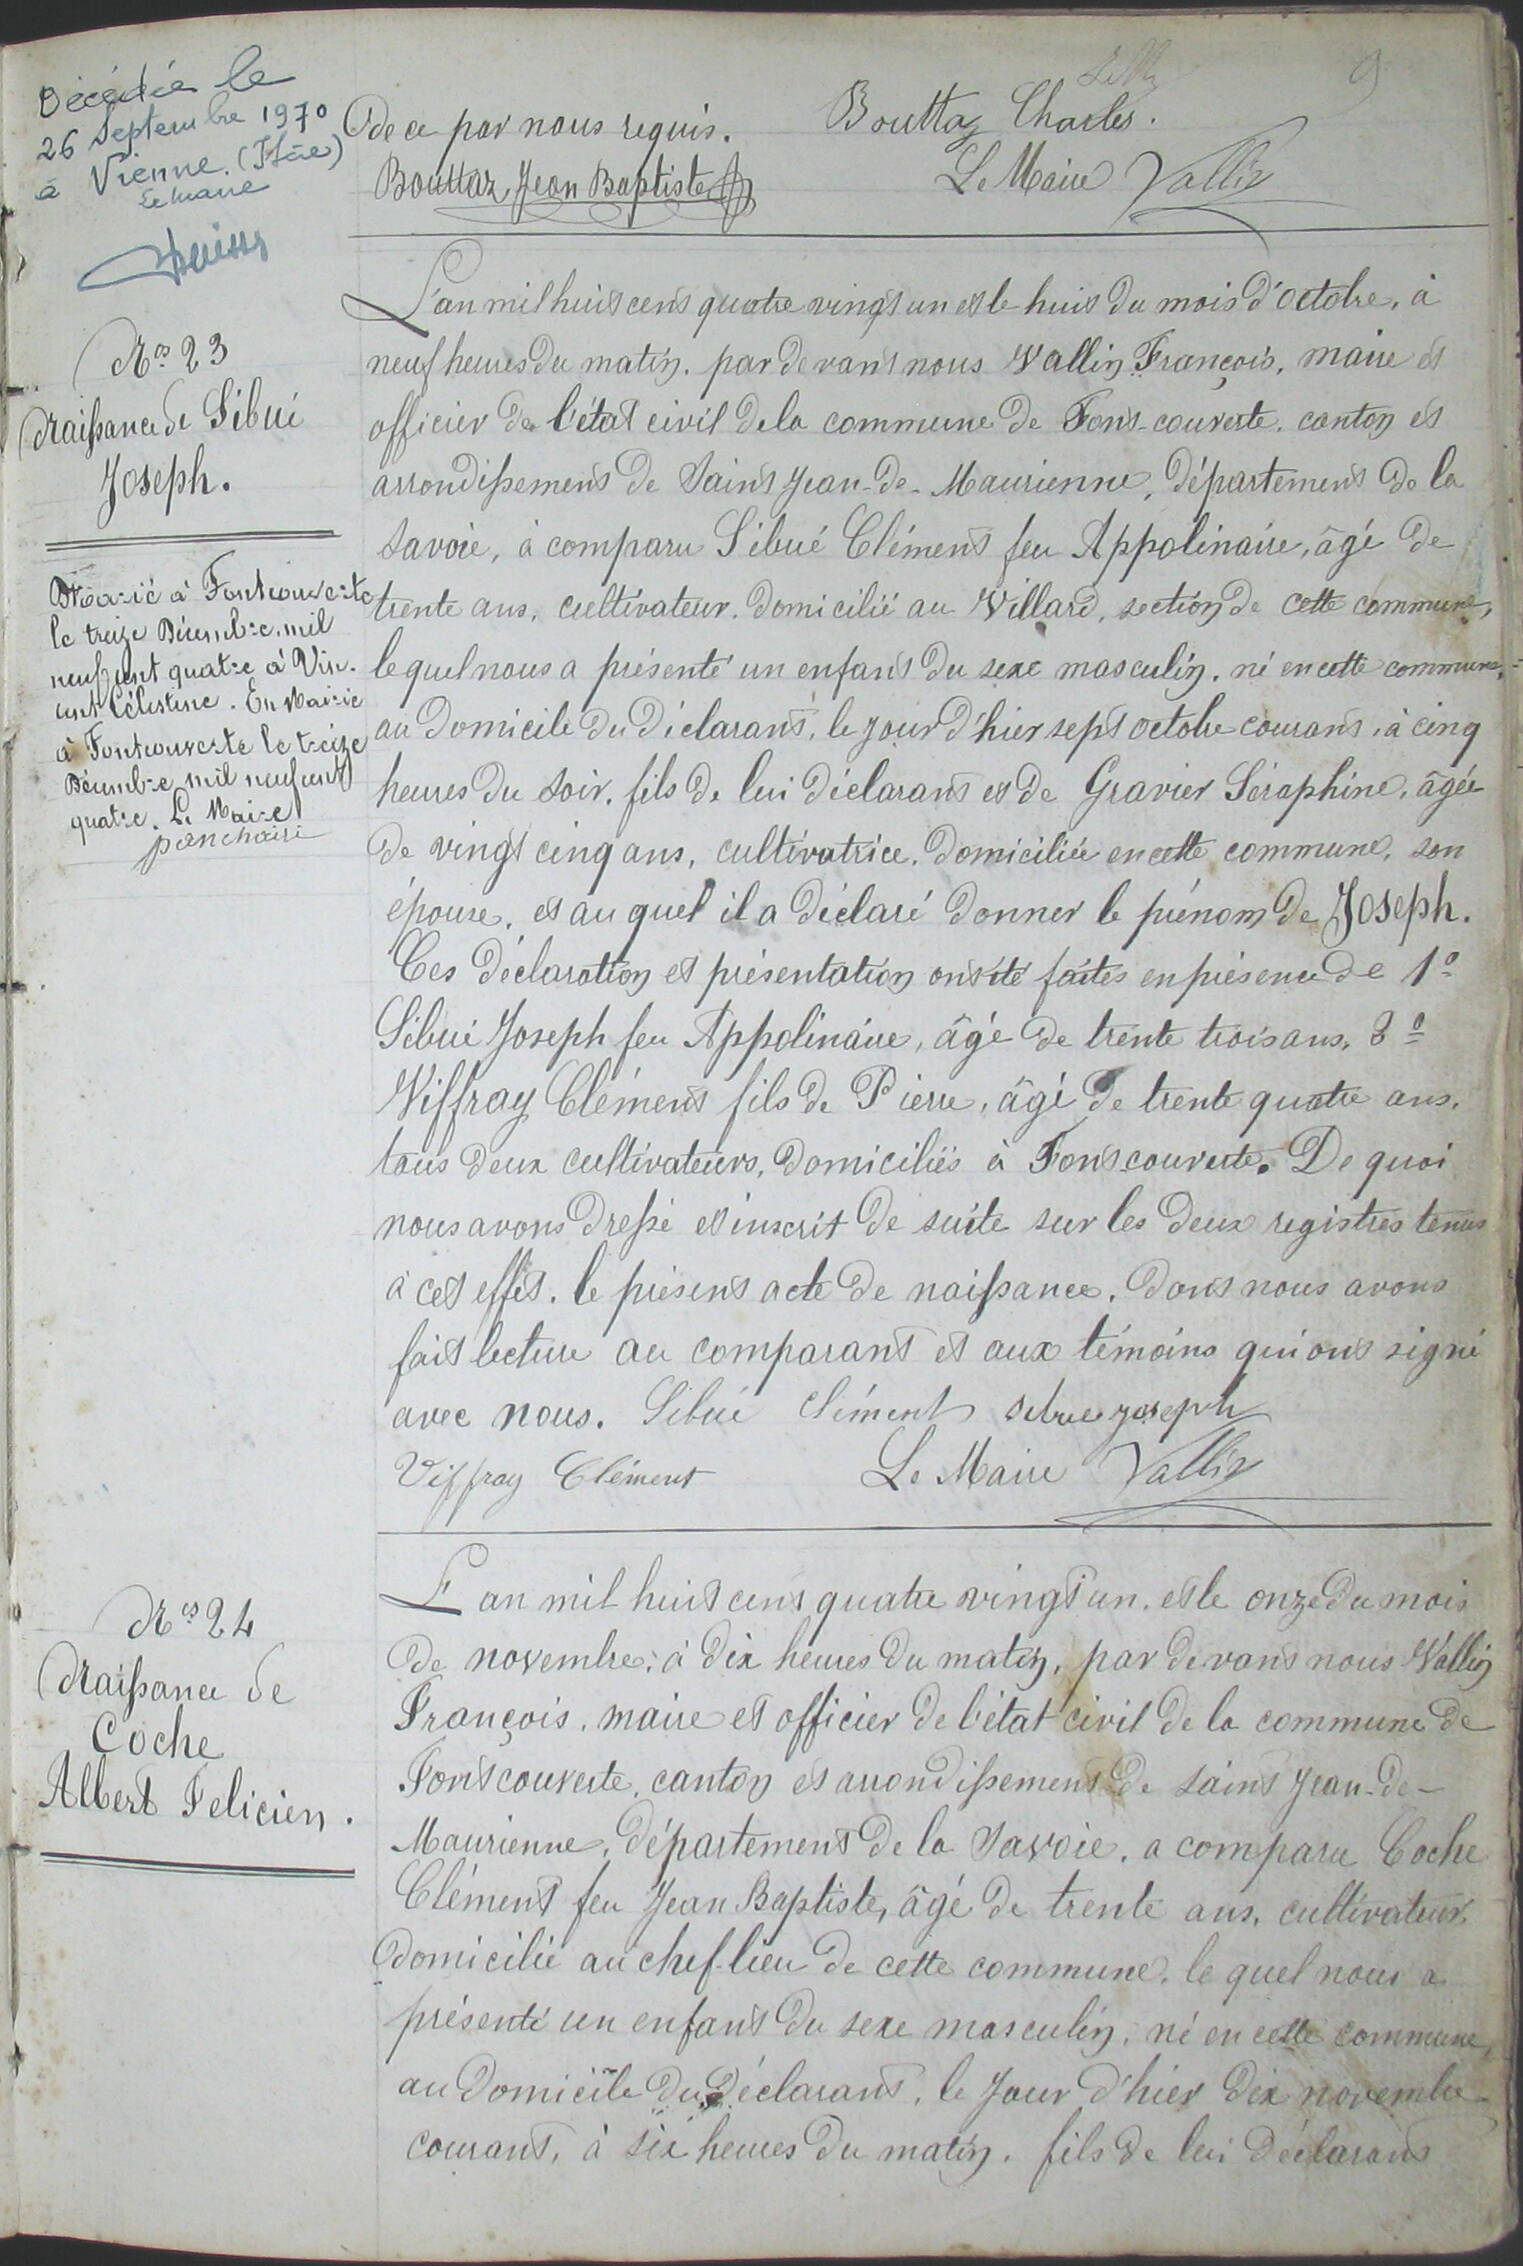 Décédée le
26 Septembre 1970
à Vienne (Isère)
Le maire
9
de ce par nous requis. Bouttaz Charles.
Bouttaz Jean Baptiste Le Maire Vallin
Nos 23
Naissance de Sibué
Joseph.
Marié à Fontcouverte
le treize Décembre mil
neuf cent quatre à Vin-
cent Célestine. En Mairie
à Fontcouverte le treize
Décembre mil neuf cent
quatre. Le Maire
L'an mil huit cent quatre vingt un et le huit du mois d'octobre, à
neuf heures du matin, par devant nous Vallin François, maire et
officier de l'état civil de la commune de Font-couverte, canton et
arrondissement de Saint Jean-de-Maurienne, département de la
Savoie, à comparu Sibué Clément feu Appolinaire, âgé de
trente ans, cultivateur, domicilié au Villard, section de cette commune,
le quel nous a présenté un enfant du sexe masculin, né en cette commune,
au domicile du déclarant, le jour d'hier sept octobre courant, à cinq
heures du soir, fils de lui déclarant et de Gravier Séraphine, âgée
de vingt cinq ans, cultivatrice, domiciliée en cette commune, son
épouse, et au quel il a déclaré donner le prénom de Joseph.
Ces déclaration et présentation ont été faites en présence de 1º
Sibué Joseph feu Appolinaire, âgé de trente trois ans, 2º
Viffray Clément fils de Pierre, âgé de trente quatre ans,
tous deux cultivateurs, domiciliés à Fontcouverte. De quoi
nous avons dressé et inscrit de suite sur les deux registres tenus
à cet effet, le présent acte de naissance, dont nous avons
fait lecture au comparant et aux témoins qui ont signé
avec nous. Sibué Clément Sibue joseph
Viffray Clément Le Maire Vallin
Nos 24
Naissance de
Coche
Albert Felicien.
L'an mil huit cent quatre vingt un, et le onze du mois
de novembre, à dix heures du matin, par devant nous Vallin
François, maire et officier de l'état civil de la commune de
Fontcouverte, canton et arrondissement de Saint Jean-de-
Maurienne, département de la Savoie, a comparu Coche
Clément feu Jean Baptiste, âgé de trente ans, cultivateur
domicilié au chef-lieu de cette commune, le quel nous a
présenté un enfant du sexe masculin, né en cette commune,
au domicile du déclarant, le jour d'hier dix novembre
courant, à six heures du matin, fils de lui déclarant